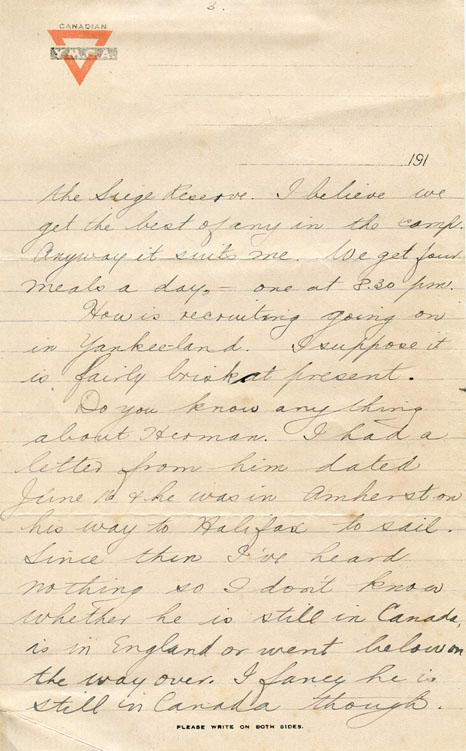 3.
CANADIAN
Y.M.C.A.
191
the Siege Reserve. I believe we
get the best of any in the camp.
Anyway it suits me. We get four
meals a day, – one at 8.30 pm.
How is recruiting going on
in Yankee-land. I suppose it
is fairly brisk at present.
Do you know anything
about Herman. I had a
letter from him dated
June & he was in Amherst on
his way to Halifax to sail.
Since then I've heard
nothing so I don't know
whether he is still in Canada,
is in England or went below on
the way over. I fancy he is
still in Canada though.
PLEASE WRITE ON BOTH SIDES.